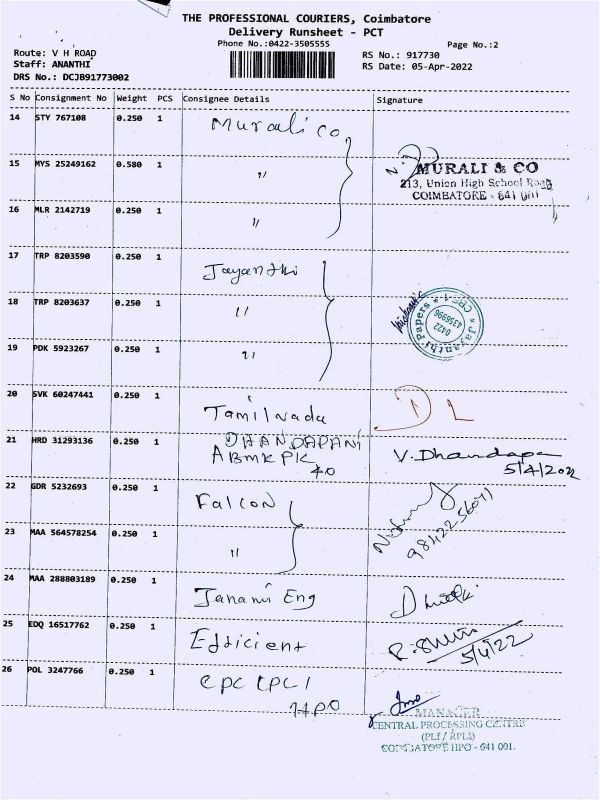 THE PROFESSIONAL COURIERS, Coimbatore
Delivery Runsheet - PCT
Phone No.:0422-3505555
Page No.:2
Route: V H ROAD
Staff: ANANTHI
DRS No.: DCJB91773002
RS No.: 917730
RS Date: 05-Apr-2022
S No Consignment No Weight PCS Consignee Details Signature
14 STY 767108 0.250 1 Murali co
15 MYS 25249162 0.580 1 "
MURALI & CO
213, Union High School Road
COIMBATORE - 641 001
16 MLR 2142719 0.250 1 "
17 TRP 8203590 0.250 1 Jayanthi
18 TRP 8203637 0.250 1 "
Jayanthi Papers CBE-1
0422
4356996
19 PDK 5923267 0.250 1 "
20 SVK 60247441 0.250 1 Tamilnadu
DL
21 HRD 31293136 0.250 1 DHANDAPANI
ABMKPK
V. Dhandapa
5/4/2022
22 GDR 5232693 0.250 1 Falcon
23 MAA 564578254 0.250 1 "
24 MAA 288803189 0.250 1 Janani Eng
25 EDQ 16517762 0.250 1 Efficient
5/4/22
26 POL 3247766 0.250 1 CPC
HPO
MANAGER
CENTRAL PROCESSING CENTRE
(PLI / RPLI)
COIMBATORE HPO - 641 001.